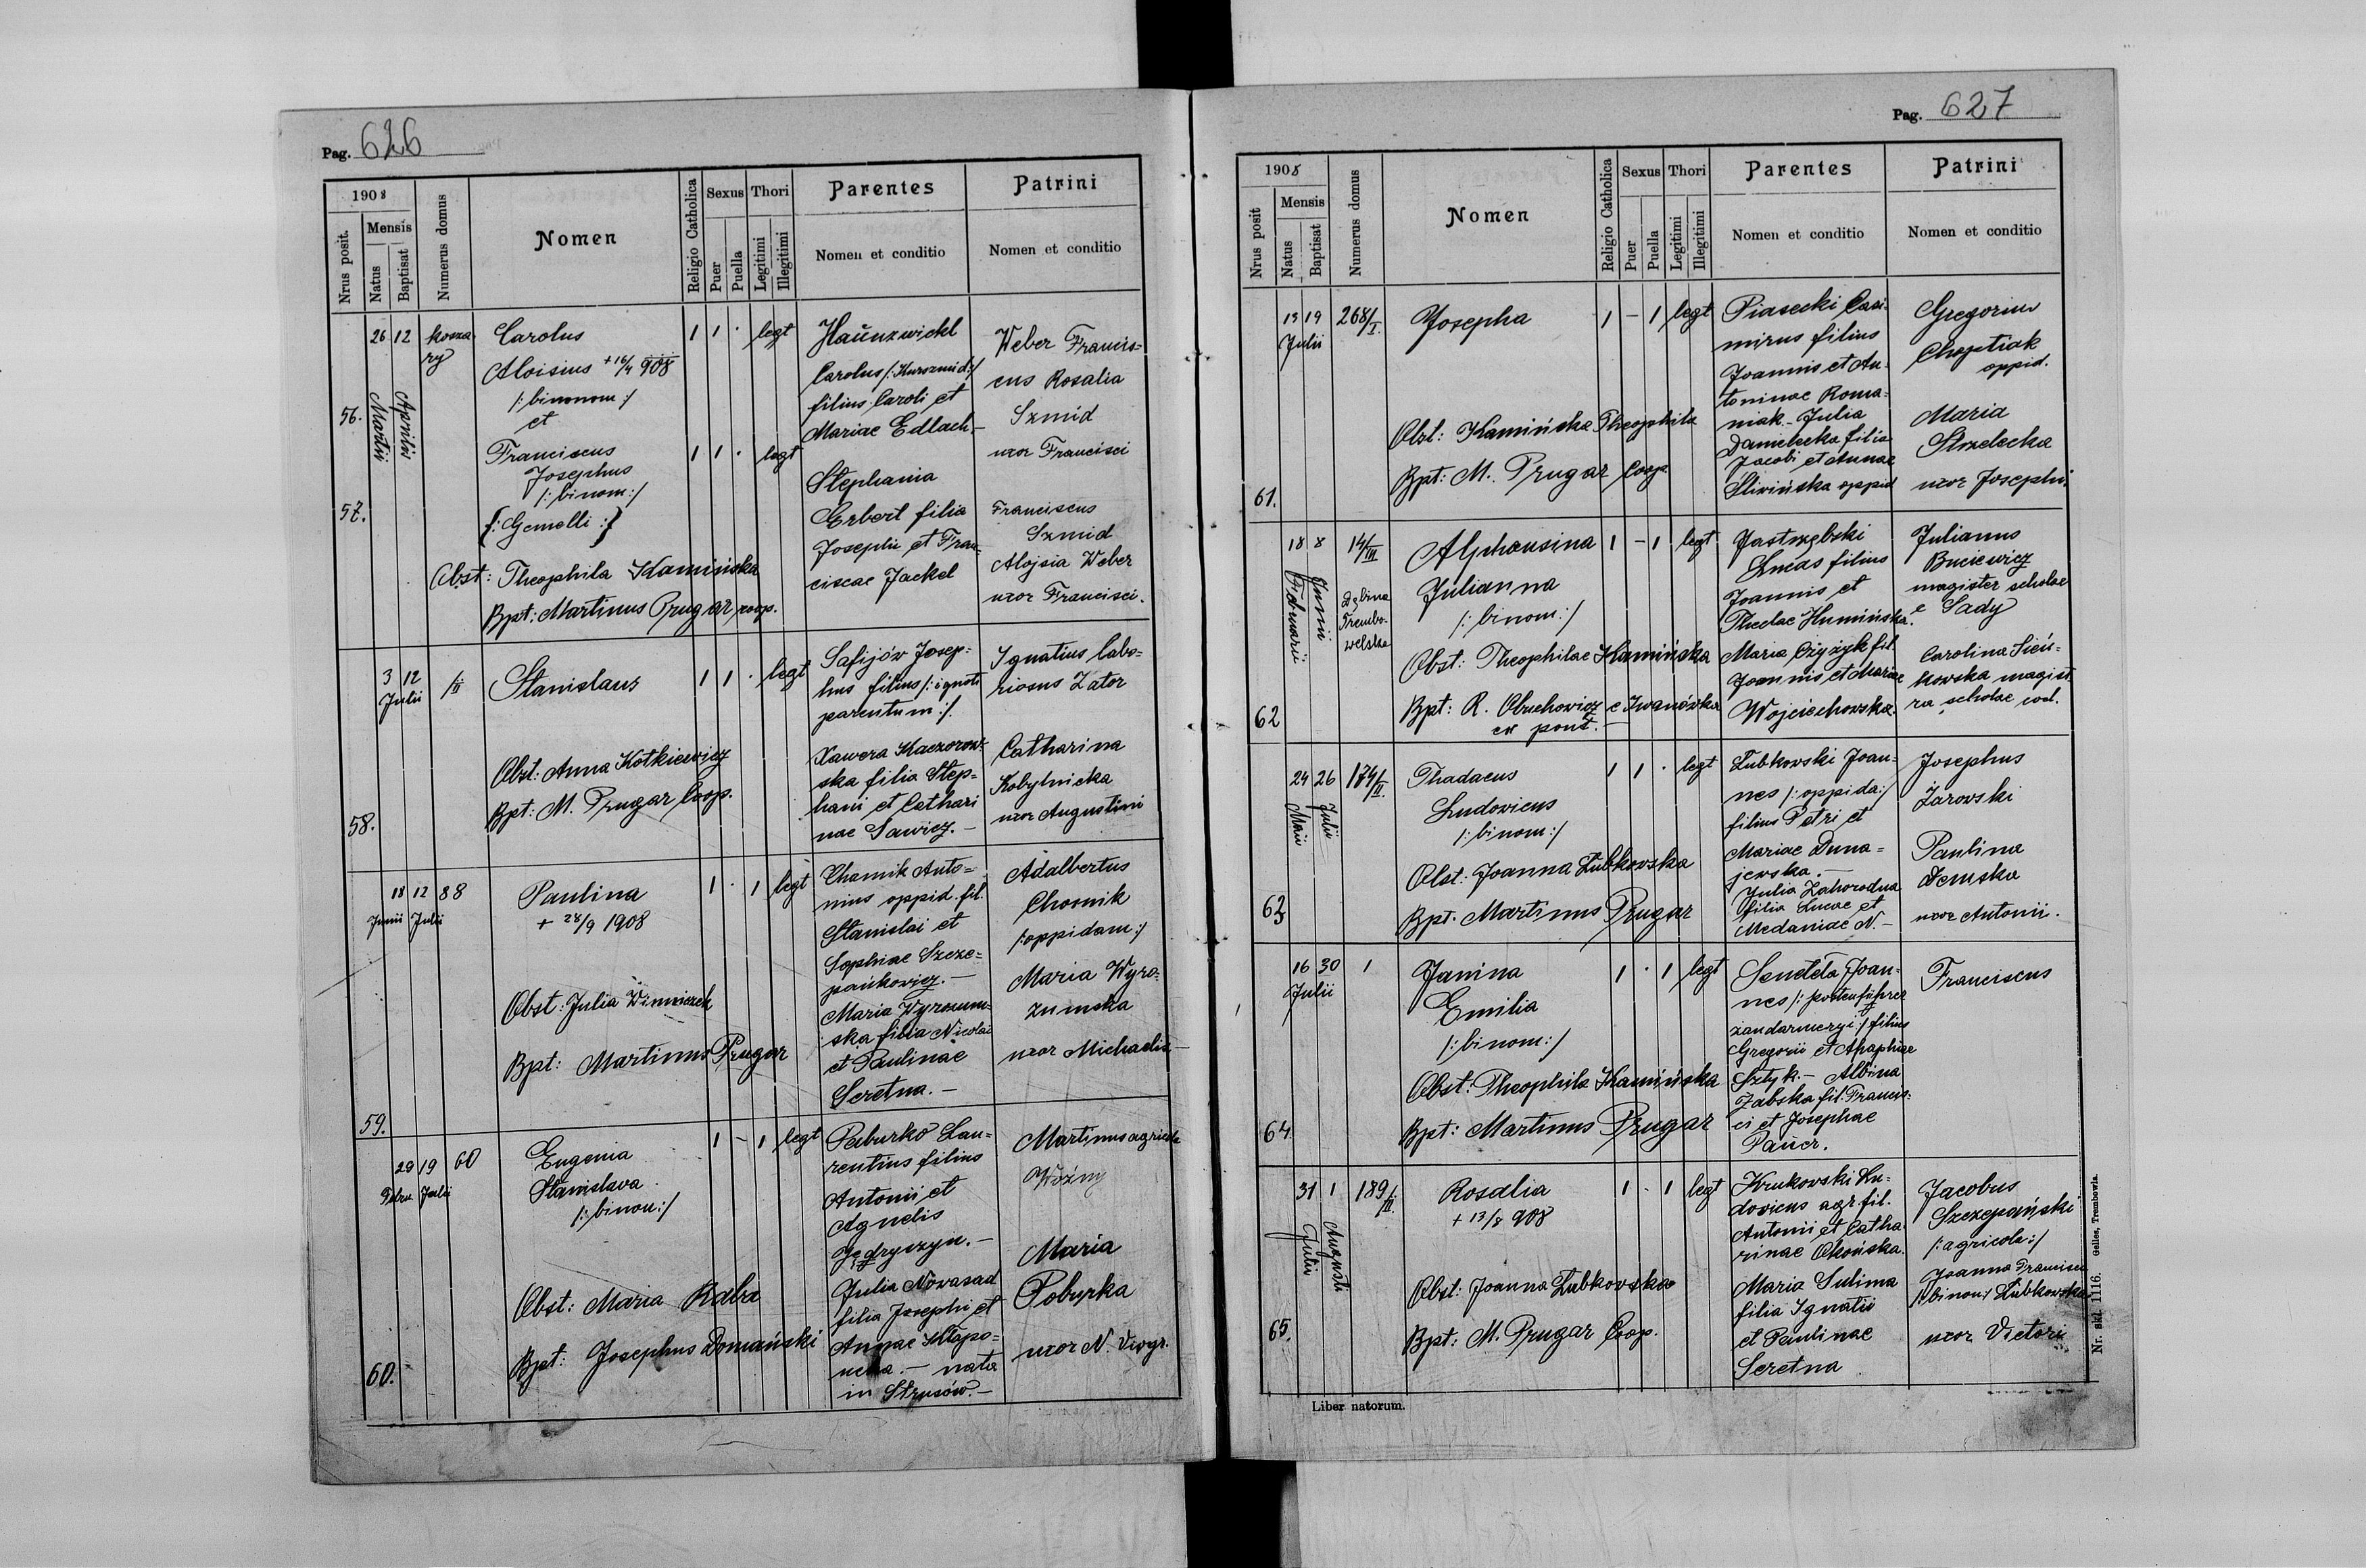 Pag. 626
1908
Nrus posit.
Mensis
Natus
Baptisat
Numerus domus
Nomen
Religio Catholica
Sexus
Puer
Puella
Thori
Legitimi
Illegitimi
Parentes
Nomen et conditio
Patrini
Nomen et conditio
56.
26 12
Martii Aprilii
kosza-
ry
Carolus
Aloisius + 16/4 908
/: binonom :/
et
1 1 · legt
57.
Franciscus
Josephus
/: binom :/
{: Gemelli :}
1 1 · legt
Obst: Theophila Kamińska
Bpt: Martinus Prugar coop.
Carolus
filius Caroli et
Mariae Edlach.-
Stephania
Erbert filia
Josephi et Fran-
ciscae Jackel
Weber Francis=
cus Rosalia
Szmid
uxor Francisci
Franciscus
Szmid
Alojsia Weber
uxor Francisci.
58.
3 12
Julii
/II
Stanislaus
1 1 · legt
Obst: Anna Kotkiewicz
Bpt: M. Prugar Coop.
Safijów Josep=
hus filius /: ignoti
parentum :/.
Xawera Kaczorow-
ska filia Step-
hani et Cathari
nae Sawicz. -
Ignatius labo-
riosus Zator
Catharina
Kobylnicka
uxor Augustini
59.
18 12
Junii Julii
88
Paulina
+ 28/9 1908
1 · 1 legt
Obst: Julia Winniczek
Bpt: Martinus Prugar
Chamik Anto=
nius oppid. fil.
Stanislai et
Sophiae Szcze=
pankowicz. -
Maria Wyrozum-
ska filia Nicolai
et Paulinae
Seretna. -
Adalbertus
Chomik
/: oppidam :/
Maria Wyro-
zumska
uxor Michaelis. -
60.
29 19
Febru. Julii
60
Eugenia
Stanislava
/: binom :/
1 - 1 legt
Obst: Maria Baba
Bpt: Josephus Domański
Paburko Lau=
rentius filius
Antonii et
Agnelis
Jędryszyn. -
Julia Nowasad
filia Josephi et
Annae
- nata
in Strusów. -
Martinus agricola
Woźny
Maria
Poburka
uxor N.
Pag. 627
1908
Nrus posit
Mensis
Natus
Baptisat
Numerus domus
Nomen
Religio Catholica
Sexus
Puer
Puella
Thori
Legitimi
Illegitimi
Parentes
Nomen et conditio
Patrini
Nomen et conditio
61.
15 19
Julii
268/I.
Josepha
1 - 1 legt
Obst: Kamińska Theophila
Bpt: M. Prugar Coop.
Piasecki Casi-
mirus filius
Joannis et An-
toninae Roma=
niak. - Julia
Danielecka filia
Jacobi et Annae
Śliwińska oppid
Gregorius
Choptiak
oppid.
Maria
Strzelecka
uxor Josephi.
62
18 8
Februarii Junii
14/III
Dębina
Trembo-
welska
Alphonsina
Julianna
/: binom :/
1 - 1 legt
Obst: Theophilae Kamińska
Bpt: R. Obuchowicz e Iwanówka
ex pont. -
Jastrzębski
Lucas filius
Joannis et
Theclae Humińska.
Maria Czyżyk fil.
Joannis et Mariae
Wojciechowska.
Julianus
Buciewicz
magister scholae
e Sady
Carolina Sień-
kowska magist
ra scholae
63
24 26
Maii Julii
174/II.
Thadaeus
Ludovicus
/: binom :/
1 1 · legt
Obst: Joanna Łubkowska
Bpt. Martinus Prugar
Łubkowski Joan-
nes /: oppida :/
filius Petri et
Mariae Duna=
jewska. -
Julia Zahorodna
filia Lucae et
Medaniae N. -
Josephus
Żarowski
Paulina
Demska
uxor Antonii.
64.
16 30
Julii
1
Janina
Emilia
/: binom :/
1 · 1 legt
Obst: Theophila Kamińska
Bpt: Martinus Prugar
Seneta Joan-
nes /: postenführer
żandarmeryi :/ filius
Gregorii et Ahaphiae
Sztyk. - Albina
Żabska fil. Francis-
ci et Josephae
Pauer.
Franciscus
65.
31 1
Julii Augusti
189/III.
Rosalia
+ 13/8 908
1 · 1 legt
Obst: Joanna Łubkowska
Bpt: M. Prugar Coop.
Krukowski Lu-
dovicus agr. fil.
Antonii et Catha-
rinae Okońska.
Maria Sulima
filia Ignatii
et Paulinae
Seretna
Jacobus
Szczepański
/: agricola :/
Joanna Francisca
/: binom :/ Łubkowska
uxor Victori
Liber natorum.
Nr. skł. 1116. Gelles, Trembowla.